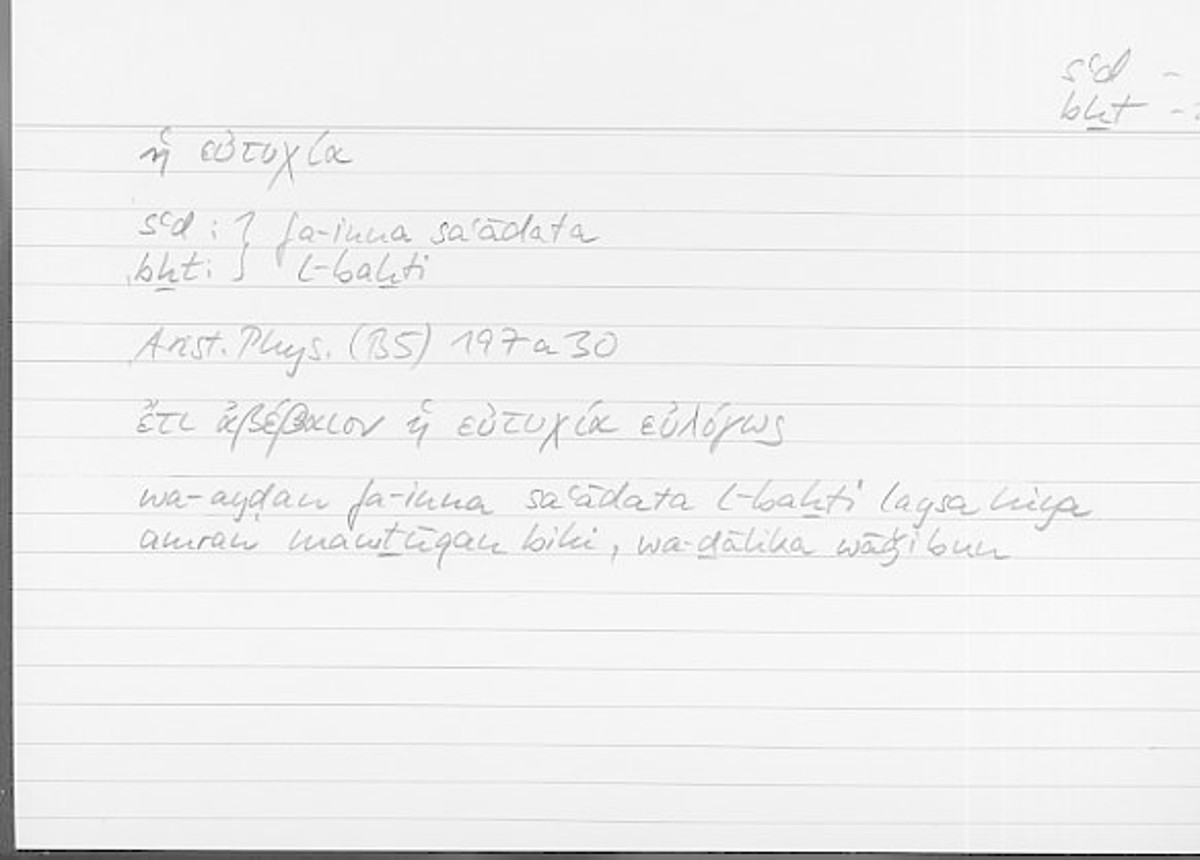 sʿd -
bḫt -
ἡ εὐτυχία
sʿd : } fa-inna saʿādata
bḫt : } l-baḫti
Arist. Phys. (B5) 197a30
ἔτι ἀβέβαιον ἡ εὐτυχία εὐλόγως
wa-ayḍan fa-inna saʿādata l-baḫti laysa hiya
amran mawṯūqan bihi, wa-ḏālika wāǧibun